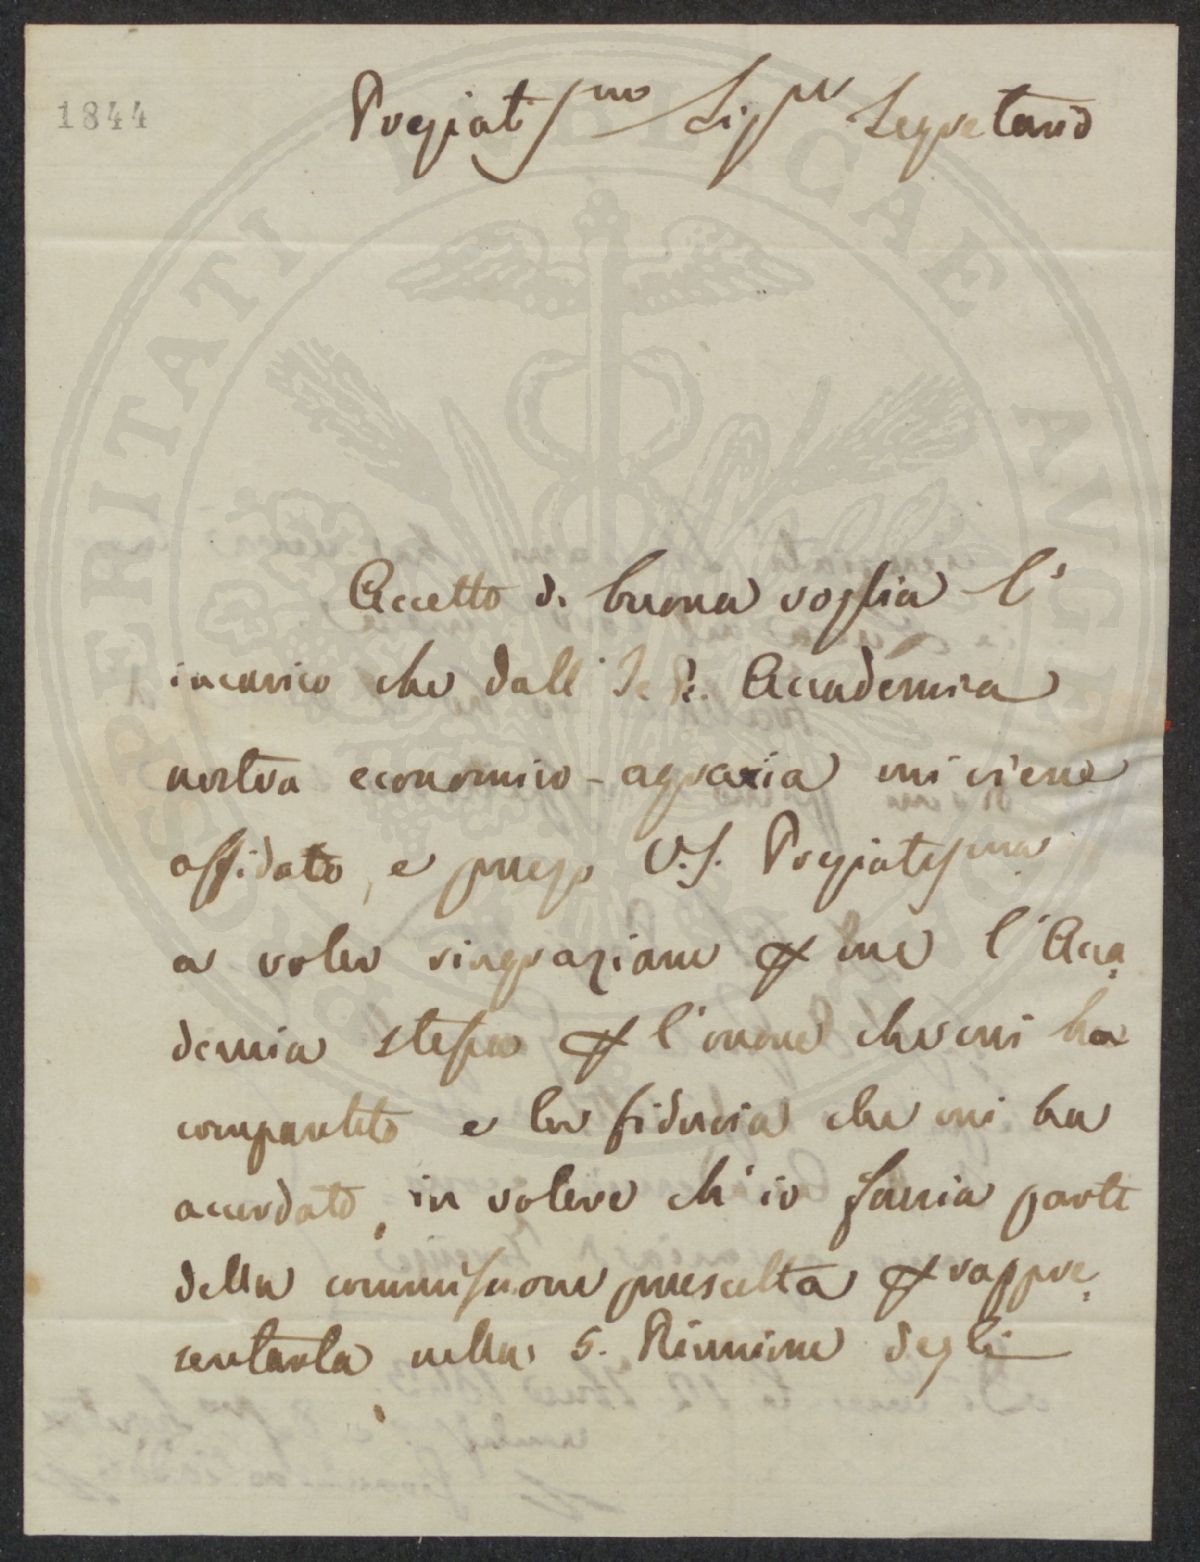 1844
Pregiatissmo Sigr Segretario
Accetto di buona voglia l'
incarico che dall' I. R. Accademia
nostra economico-agraria mi viene
affidato, e prego V.S. Pregiatissma
a voler ringraziare p me l'Acca,
demia stessa p l'onore che mi ha
compartito e la fiducia che mi ha
accordato, in volere ch'io faccia parte
della commissione prescelta p rappre,
sentarla nella 5. Riunione degli
PROSPERITATI PUBLICAE AUGENDAE